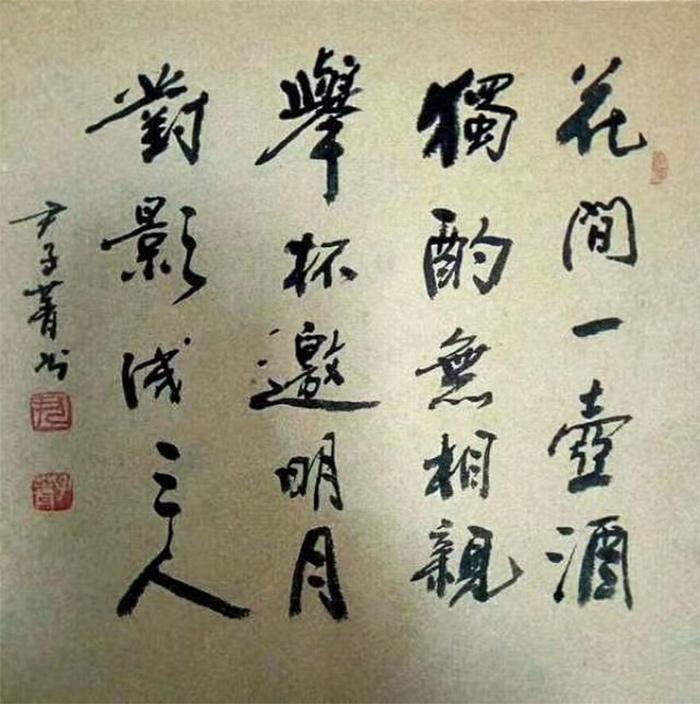 花間一壺酒
獨酌無相親
舉杯邀明月
對影成三人
尹子菁书